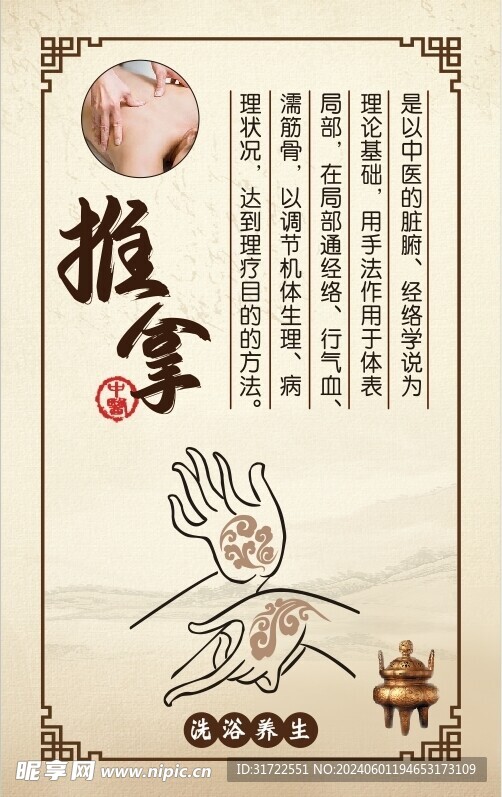 推拿
中醫
是以中医的脏腑、经络学说为
理论基础，用手法作用于体表
局部，在局部通经络、行气血、
濡筋骨，以调节机体生理、病
理状况，达到理疗目的的方法。
洗浴养生
昵享网 www.nipic.cn
ID:31722551 NO:20240601194653173109